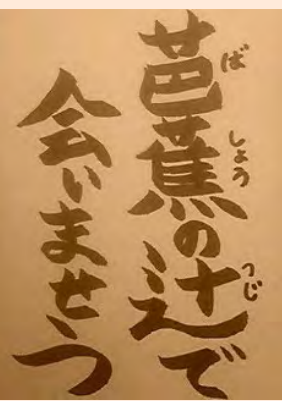 芭蕉の辻で
ばしょう
つじ
会いませう